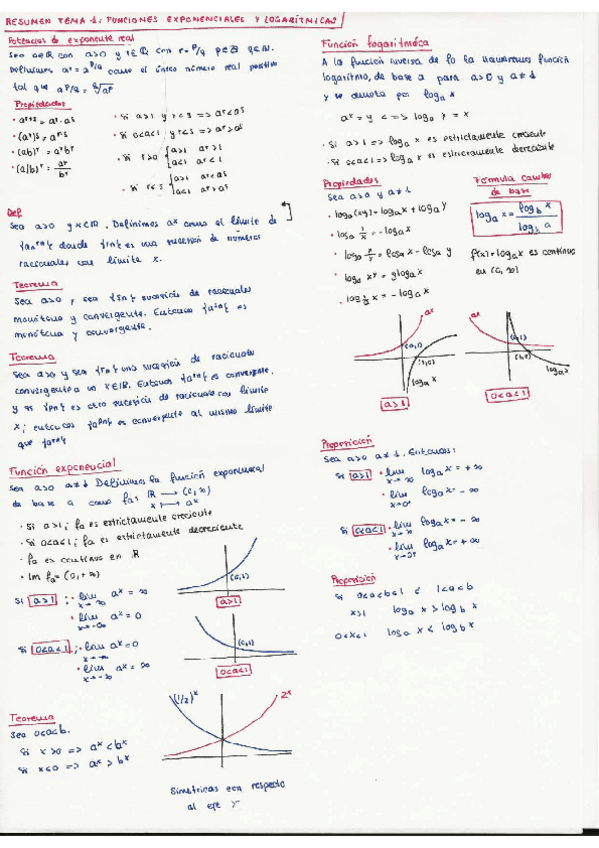 RESUMEN TEMA 1: FUNCIONES EXPONENCIALES Y LOGARÍTMICAS
Potencias de exponente real
Sea a∈R con a>0 y r∈Q con r=p/q p∈Z q∈N.
Definimos a^r = a^p/q como el único número real positivo
tal que a^p/q = q√a^p
Propiedades
· a^r+s = a^r · a^s
· (a^r)^s = a^r·s
· (ab)^r = a^r b^r
· (a/b)^r = a^r/b^r
· Si a>1 y r<s => a^r<a^s
· Si 0<a<1 y r<s => a^r>a^s
· Si r>0 { a>1 a^r>1
a<1 a^r<1
· Si r<s { a>1 a^r<a^s
a<1 a^r>a^s
Def
Sea a>0 y x∈R. Definimos a^x como el límite de
{a^rn} donde {rn} es una sucesión de números
racionales con límite x.
Teorema
Sea a>0, sea {rn} sucesión de racionales
monótona y convergente. Entonces {a^rn} es
monótona y convergente.
Teorema
Sea a>0 y sea {rn} una sucesión de racionales
convergente a un x∈R. Entonces {a^rn} es convergente,
y si {pn} es otra sucesión de racionales con límite
x, entonces {a^pn} es convergente al mismo límite
que {a^rn}
Función exponencial
Sea a>0 a≠1 Definimos la función exponencial
de base a como fa: R → (0, ∞)
x → a^x
· Si a>1, fa es estrictamente creciente
· Si 0<a<1, fa es estrictamente decreciente
· fa es continua en R
· Im fa = (0, +∞)
Si a>1 : · lim a^x = ∞
x→∞
· lim a^x = 0
x→-∞
Si 0<a<1 : · lim a^x = 0
x→∞
· lim a^x = ∞
x→-∞
(0,1)
a>1
(0,1)
0<a<1
Teorema
Sea 0<a<b.
Si x>0 => a^x<b^x
Si x<0 => a^x>b^x
(1/2)^x
2^x
Simétricas con respecto
al eje Y
Función logarítmica
A la función inversa de fa la llamamos función
logaritmo, de base a para a>0 y a≠1
y se denota por log_a x
a^y = x <=> log_a x = y
· Si a>1 => log_a x es estrictamente creciente
· Si 0<a<1 => log_a x es estrictamente decreciente
Propiedades
Sea a>0 y a≠1
· log_a (xy) = log_a x + log_a y
· log_a 1/x = -log_a x
· log_a x/y = log_a x - log_a y
· log_a x^y = y log_a x
· log_1/a x = -log_a x
Fórmula cambio
de base
log_a x = log_b x / log_b a
f(x) = log_a x es continua
en (0, ∞)
a^x
(0,1)
(1,0)
log_a x
a>1
a^x
(0,1)
(1,0)
log_a x
0<a<1
Proposición
Sea a>0 a≠1. Entonces:
Si a>1 · lim log_a x = +∞
x→∞
· lim log_a x = -∞
x→0+
Si 0<a<1 · lim log_a x = -∞
x→∞
· lim log_a x = +∞
x→0+
Proposición
Si 0<a<b<1 ó 1<a<b
x>1 log_a x > log_b x
0<x<1 log_a x < log_b x